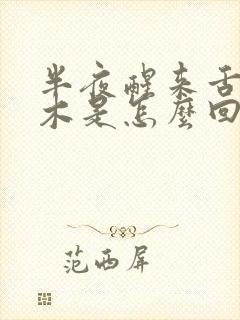 半夜醒来舌
木是怎麽回
范西屏